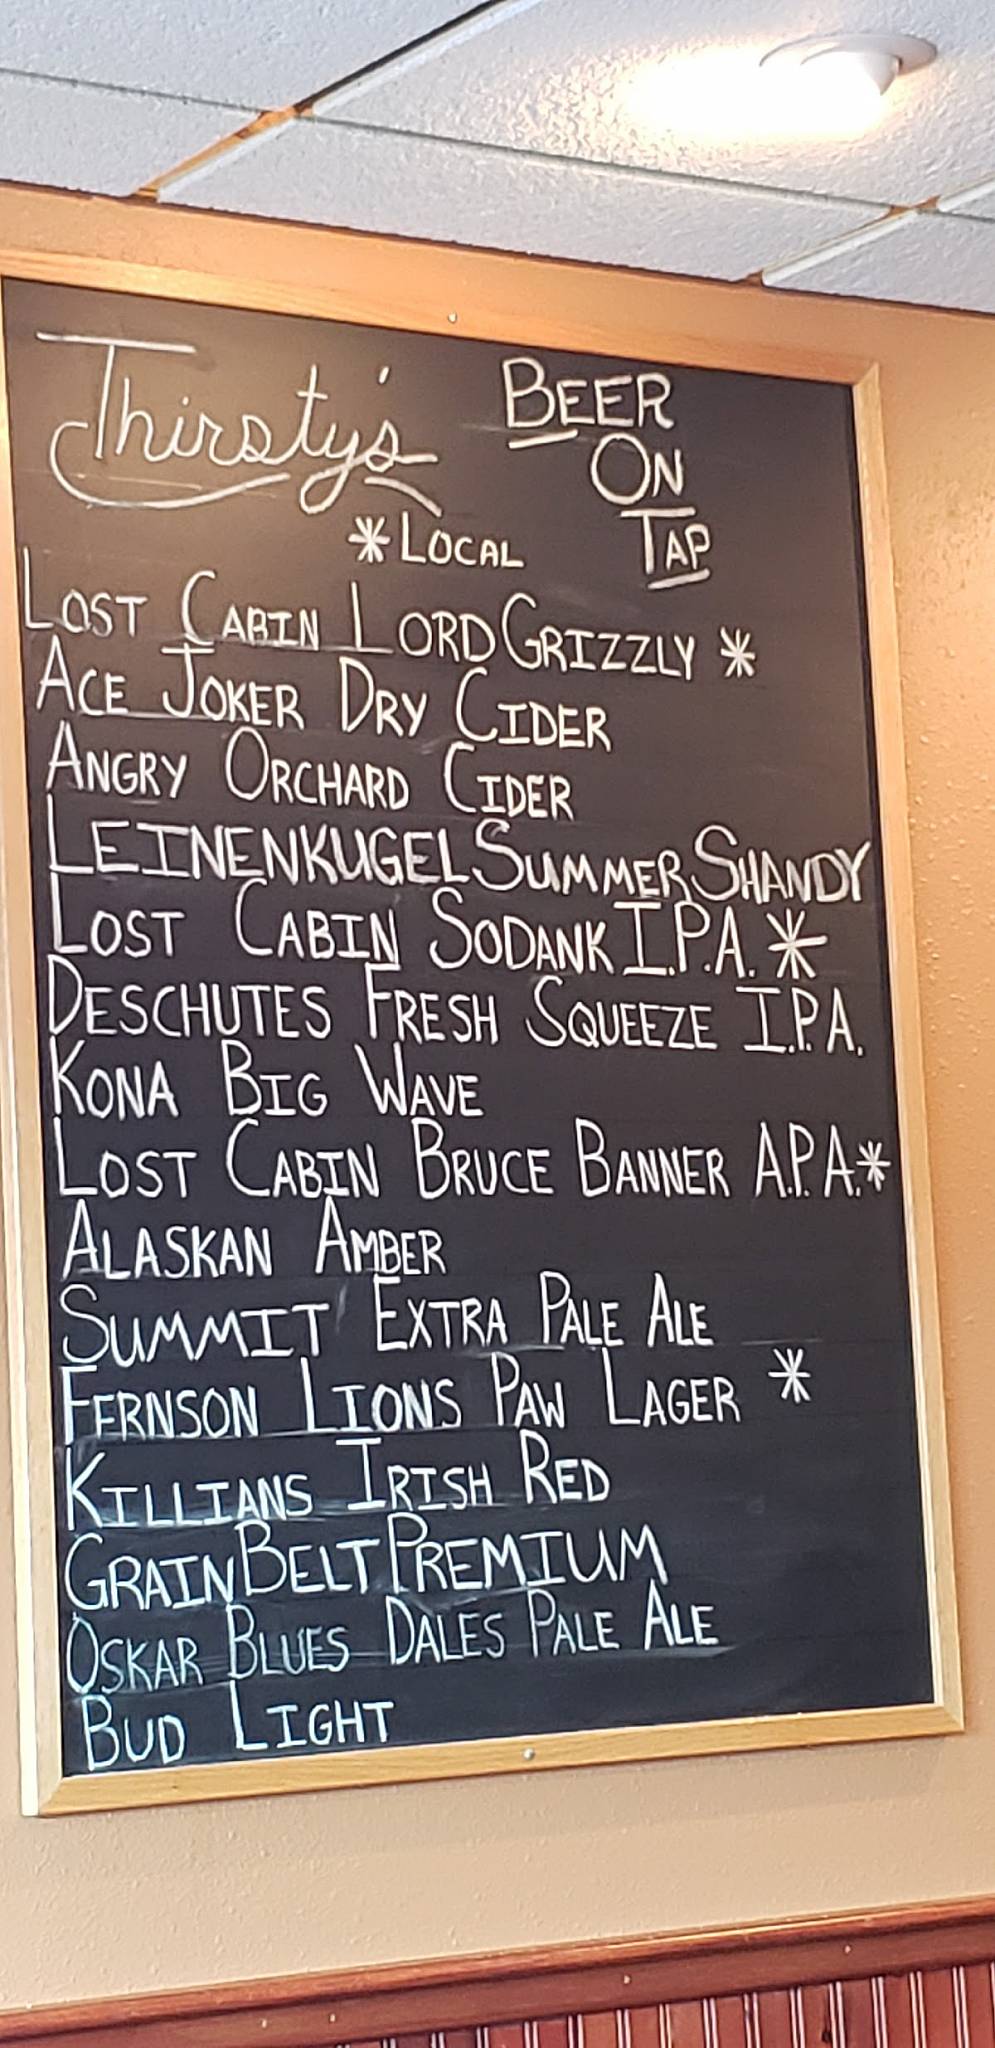 Thirsty's
BEER
ON
TAP
*LOCAL
LOST CABIN LORD GRIZZLY *
ACE JOKER DRY CIDER
ANGRY ORCHARD CIDER
LEINENKUGEL SUMMER SHANDY
LOST CABIN SODANK I.P.A. *
DESCHUTES FRESH SQUEEZE I.P.A.
KONA BIG WAVE
LOST CABIN BRUCE BANNER A.P.A. *
ALASKAN AMBER
SUMMIT EXTRA PALE ALE
FERNSON LIONS PAW LAGER *
KILLIANS IRISH RED
GRAIN BELT PREMIUM
OSKAR BLUES DALES PALE ALE
BUD LIGHT